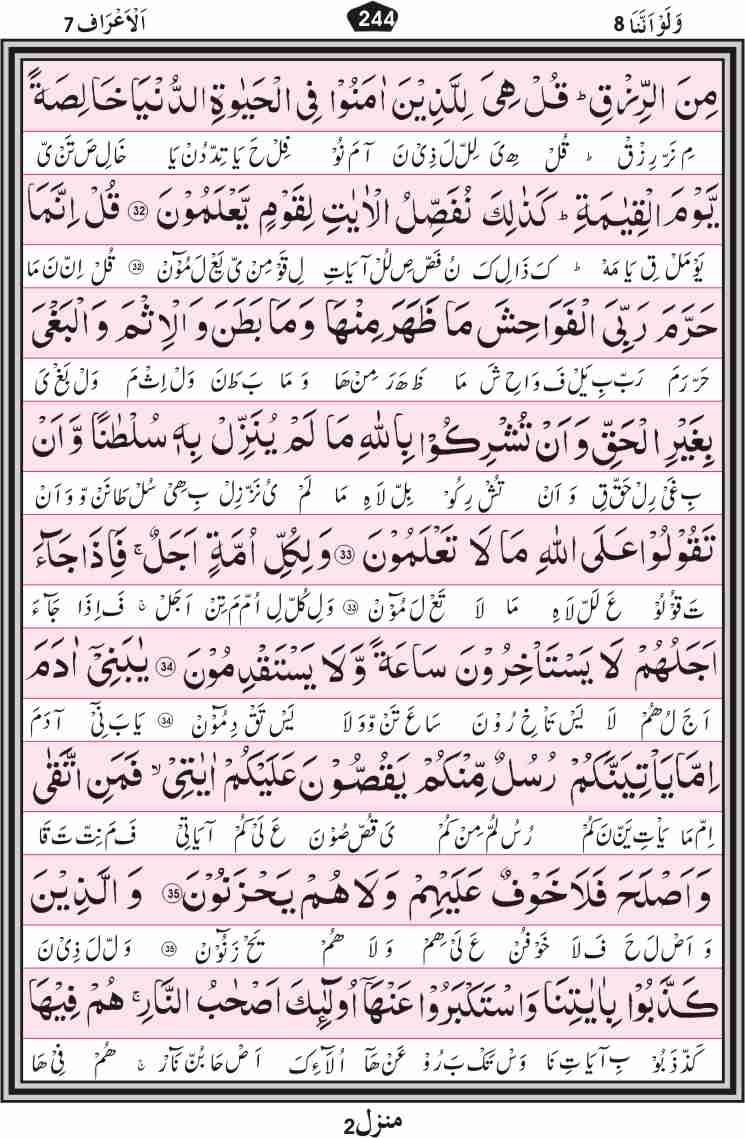 وَلَوْ اَنَّنَا 8 244 اَلْاَعْرَاف 7
مِنَ الرِّزْقِ ؕ قُلْ هِیَ لِلَّذِیْنَ اٰمَنُوْا فِی الْحَیٰوةِ الدُّنْیَا خَالِصَةً
مِ نَرّ رِ زْ قْ ؕ قُلْ هِ یَ لِلْ لَ ذِیْ نَ آ مَ نُوْ فِلْ حَ یَا تِدْ دُنْ یَا خَالِ صَ تَنْ یّ
یَّوْمَ الْقِیٰمَةِ ؕ كَذٰلِكَ نُفَصِّلُ الْاٰیٰتِ لِقَوْمٍ یَّعْلَمُوْنَ 32 قُلْ اِنَّمَا
یَوْ مَلْ قِ یَا مَهْ ؕ كَ ذَالِ كَ نُ فَصّ صِ لُلْ آ یَاتِ لِ قَوْ مِنْ یّ یَعْ لَ مُوْٓنْ 32 قُلْ اِنّ نَ مَا
حَرَّمَ رَبِّیَ الْفَوَاحِشَ مَا ظَهَرَ مِنْهَا وَمَا بَطَنَ وَالْاِثْمَ وَالْبَغْیَ
حَرّ رَمَ رَبّ بِ یَلْ فَ وَاحِ شَ مَا ظَ هَ رَ مِنْ هَا وَ مَا بَ طَ نَ وَلْ اِثْ مَ وَلْ بَغْ یَ
بِغَیْرِ الْحَقِّ وَاَنْ تُشْرِكُوْا بِاللّٰهِ مَا لَمْ یُنَزِّلْ بِهٖ سُلْطٰنًا وَّاَنْ
بِ غَیْ رِلْ حَقّ قِ وَ اَنْ تُشْ رِكُوْ بِلّ لَا هِ مَا لَمْ یُ نَزّ زِلْ بِ هِیْ سُلْ طَانَنْ وّ وَ اَنْ
تَقُوْلُوْا عَلَی اللّٰهِ مَا لَا تَعْلَمُوْنَ 33 وَلِكُلِّ اُمَّةٍ اَجَلٌ ۚ فَاِذَا جَآءَ
تَ قُوْلُوْ عَ لَلّ لَا هِ مَا لَا تَعْ لَ مُوْٓنْ 33 وَ لِ كُلّ لِ اُمّ مَ تِنْ اَ جَلْ ۚ فَ اِذَا جَآءَ
اَجَلُهُمْ لَا یَسْتَاْخِرُوْنَ سَاعَةً وَّلَا یَسْتَقْدِمُوْنَ 34 یٰبَنِیْۤ اٰدَمَ
اَ جَ لُ هُمْ لَا یَسْ تَاْ خِ رُوْ نَ سَا عَ تَنْ وّ وَ لَا یَسْ تَقْ دِ مُوْٓنْ 34 یَا بَ نِیْٓ آ دَمَ
اِمَّا یَاْتِیَنَّكُمْ رُسُلٌ مِّنْكُمْ یَقُصُّوْنَ عَلَیْكُمْ اٰیٰتِیْ ۙ فَمَنِ اتَّقٰی
اِمّ مَا یَاْ تِ یَنّ نَ كُمْ رُ سُ لُمّ مِنْ كُمْ یَ قُصّ صُوْنَ عَ لَیْ كُمْ آ یَاتِیْ فَ مَ نِتّ تَ قَا
وَاَصْلَحَ فَلَا خَوْفٌ عَلَیْهِمْ وَلَا هُمْ یَحْزَنُوْنَ 35 وَالَّذِیْنَ
وَ اَصْ لَ حَ فَ لَا خَوْ فُنْ عَ لَیْ هِمْ وَ لَا هُمْ یَحْ زَ نُوْٓنْ 35 وَلّ لَ ذِیْ نَ
كَذَّبُوْا بِاٰیٰتِنَا وَاسْتَكْبَرُوْا عَنْهَاۤ اُولٰٓىِٕكَ اَصْحٰبُ النَّارِ ۚ هُمْ فِیْهَا
كَذّ ذَ بُوْ بِ آ یَاتِ نَا وَسْ تَكْ بَ رُوْ عَنْ هَآ اُلَآءِ كَ اَصْ حَا بُنْ نَآرْ ۚ هُمْ فِیْ هَا
منزل2